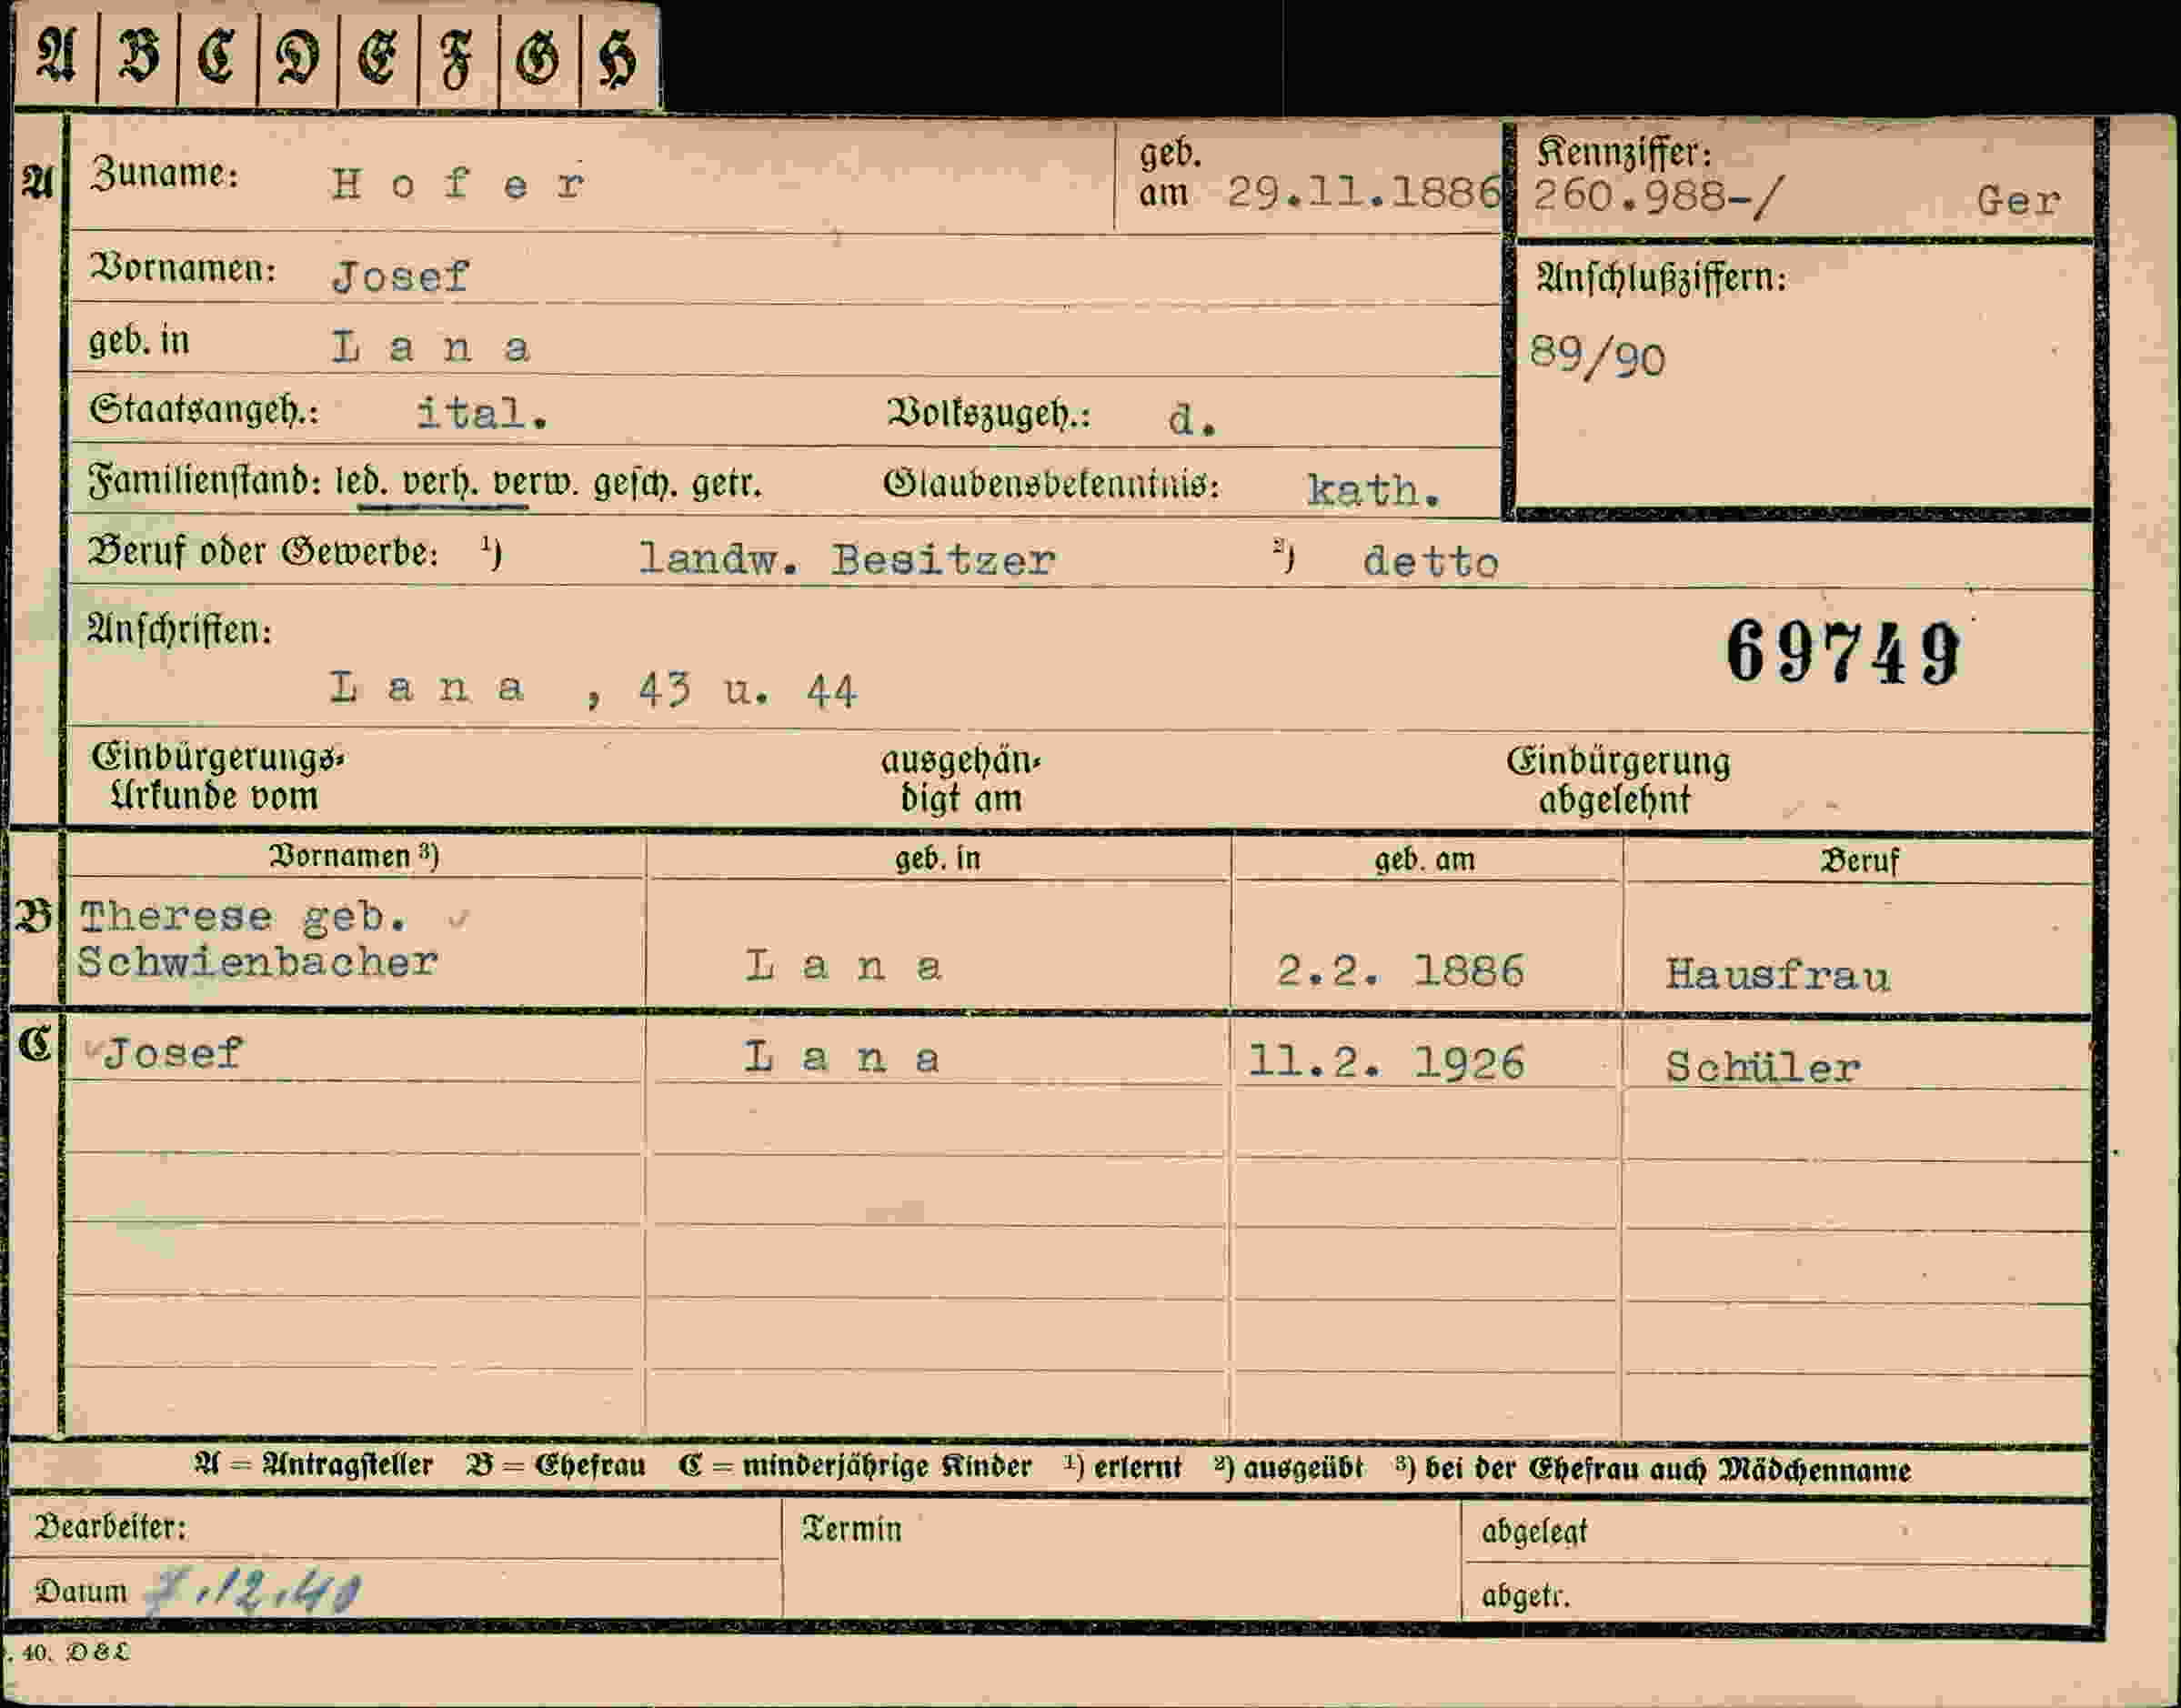 A B C D E F G H
A Zuname: Hofer geb. am 29.11.1886 Kennziffer: 260.988-/ Ger
Vornamen: Josef Anschlußziffern:
geb. in Lana 89/90
Staatsangeh.: ital. Volkszugeh.: d.
Familienstand: led. verh. verw. gesch. getr. Glaubensbekenntnis: kath.
Beruf oder Gewerbe: ¹) landw. Besitzer ²) detto
Anschriften: 69749
Lana , 43 u. 44
Einbürgerungs- ausgehän- Einbürgerung
Urkunde vom digt am abgelehnt
Vornamen ³) geb. in geb. am Beruf
B Therese geb.
Schwienbacher Lana 2.2. 1886 Hausfrau
C Josef Lana 11.2. 1926 Schüler
A = Antragsteller B = Ehefrau C = minderjährige Kinder ¹) erlernt ²) ausgeübt ³) bei der Ehefrau auch Mädchenname
Bearbeiter: Termin abgelegt
Datum 7.12.40 abgetr.
. 40. D & L